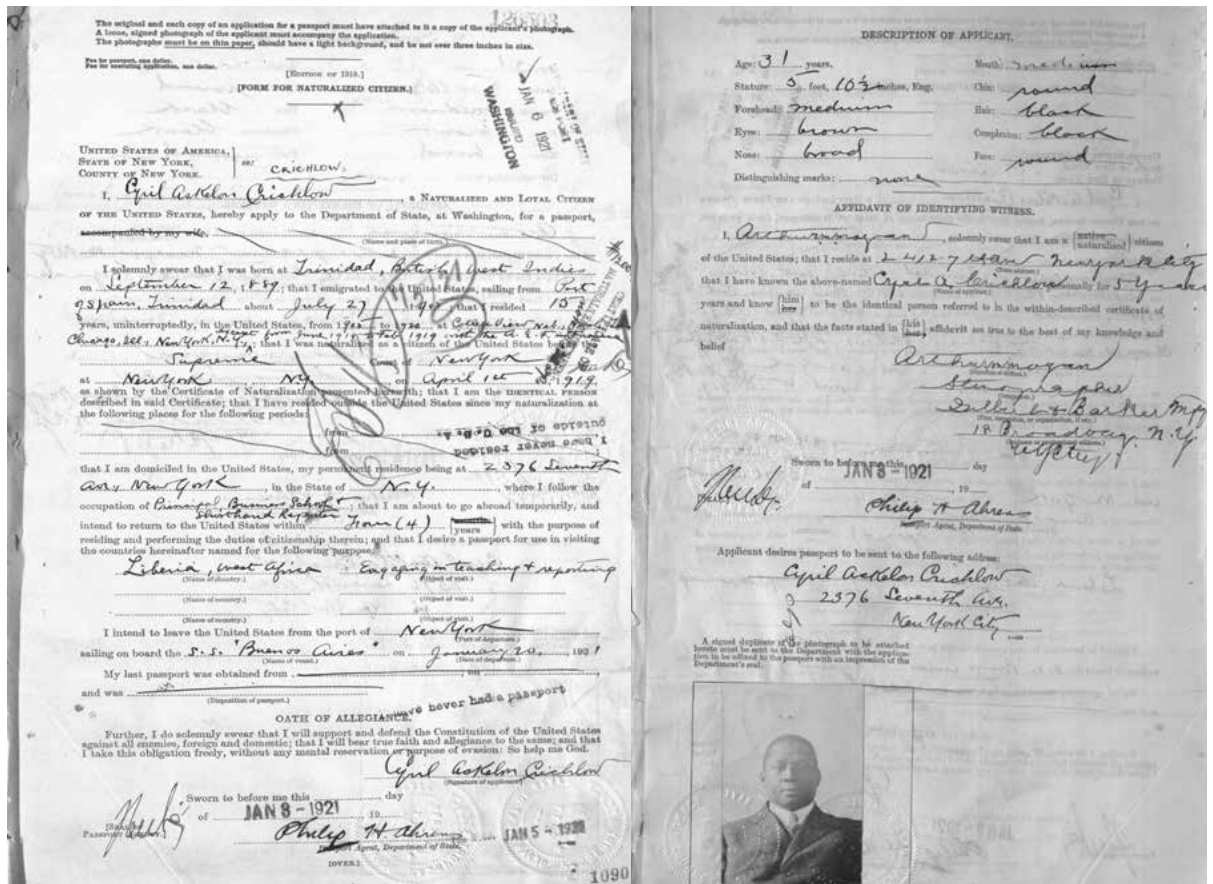 126503
The original and each copy of an application for a passport must have attached to it a copy of the applicant's photograph.
A loose, signed photograph of the applicant must accompany the application.
The photographs must be on thin paper, should have a light background, and be not over three inches in size.
Fee for passport, one dollar.
Fee for executing application, one dollar.
[EDITION OF 1918.]
[FORM FOR NATURALIZED CITIZEN.]
JAN 6 1921
ISSUED
WASHINGTON
UNITED STATES OF AMERICA,
STATE OF NEW YORK,
COUNTY OF NEW YORK.
ss:
CRICHLOW.
I, Cyril Askelon Crichlow, a NATURALIZED AND LOYAL CITIZEN
OF THE UNITED STATES, hereby apply to the Department of State, at Washington, for a passport,
accompanied by my wife,
(Name and place of birth.)
I solemnly swear that I was born at Trinidad, British West Indies
on September 12, 1889; that I emigrated to the United States, sailing from Port
of Spain, Trinidad about July 27; that I resided 15
years, uninterruptedly, in the United States, from to 1920 at College View Neb.,
Chicago, Ill., New York, N.Y.; that I was naturalized as a citizen of the United States before the
Supreme Court of New York
at New York N.Y. on April 1st, 1919,
as shown by the Certificate of Naturalization presented herewith; that I am the IDENTICAL PERSON
described in said Certificate; that I have resided outside the United States since my naturalization at
the following places for the following periods:
from
from
I have never resided
outside of the U. S. A.
that I am domiciled in the United States, my permanent residence being at 2376 Seventh
Ave, New York, in the State of N.Y., where I follow the
occupation of Principal Business School &
Shorthand Reporter; that I am about to go abroad temporarily, and
intend to return to the United States within four (4) years with the purpose of
residing and performing the duties of citizenship therein; and that I desire a passport for use in visiting
the countries hereinafter named for the following purpose:
Liberia, West Africa Engaging in teaching & reporting
(Name of country.) (Object of visit.)
(Name of country.) (Object of visit.)
(Name of country.) (Object of visit.)
I intend to leave the United States from the port of New York
(Port of departure.)
sailing on board the S.S. "Buenos Aires" on January 20, 1921
(Name of vessel.) (Date of departure.)
My last passport was obtained from
and was
(Disposition of passport.)
have never had a passport
OATH OF ALLEGIANCE.
Further, I do solemnly swear that I will support and defend the Constitution of the United States
against all enemies, foreign and domestic; that I will bear true faith and allegiance to the same; and that
I take this obligation freely, without any mental reservation or purpose of evasion: So help me God.
Cyril Askelon Crichlow
(Signature of applicant.)
Sworn to before me this day
of JAN 3 - 1921, 19
Philip H Ahrens
Passport Agent, Department of State.
[OVER.]
1090
DESCRIPTION OF APPLICANT.
Age: 31 years. Mouth: medium
Stature: 5 feet, 10½ inches, Eng. Chin: round
Forehead: medium Hair: black
Eyes: brown Complexion: black
Nose: broad Face: round
Distinguishing marks: none
AFFIDAVIT OF IDENTIFYING WITNESS.
I, , solemnly swear that I am a {native naturalized} citizen
of the United States; that I reside at New York City
that I have known the above-named Cyril A. Crichlow personally for 5 years
years and know {him her} to be the identical person referred to in the within-described certificate of
naturalization, and that the facts stated in {his her} affidavit are true to the best of my knowledge and
belief
Stenographer
& Barker Mfg
18 Broadway, N.Y.
Sworn to before me this day
of JAN 3 - 1921, 19
Philip H Ahrens
Passport Agent, Department of State.
Applicant desires passport to be sent to the following address:
Cyril Askelon Crichlow
2376 Seventh Ave.
New York City
A signed duplicate of the photograph to be attached
hereto must be sent to the Department with the applica-
tion to be affixed to the passport with an impression of the
Department's seal.